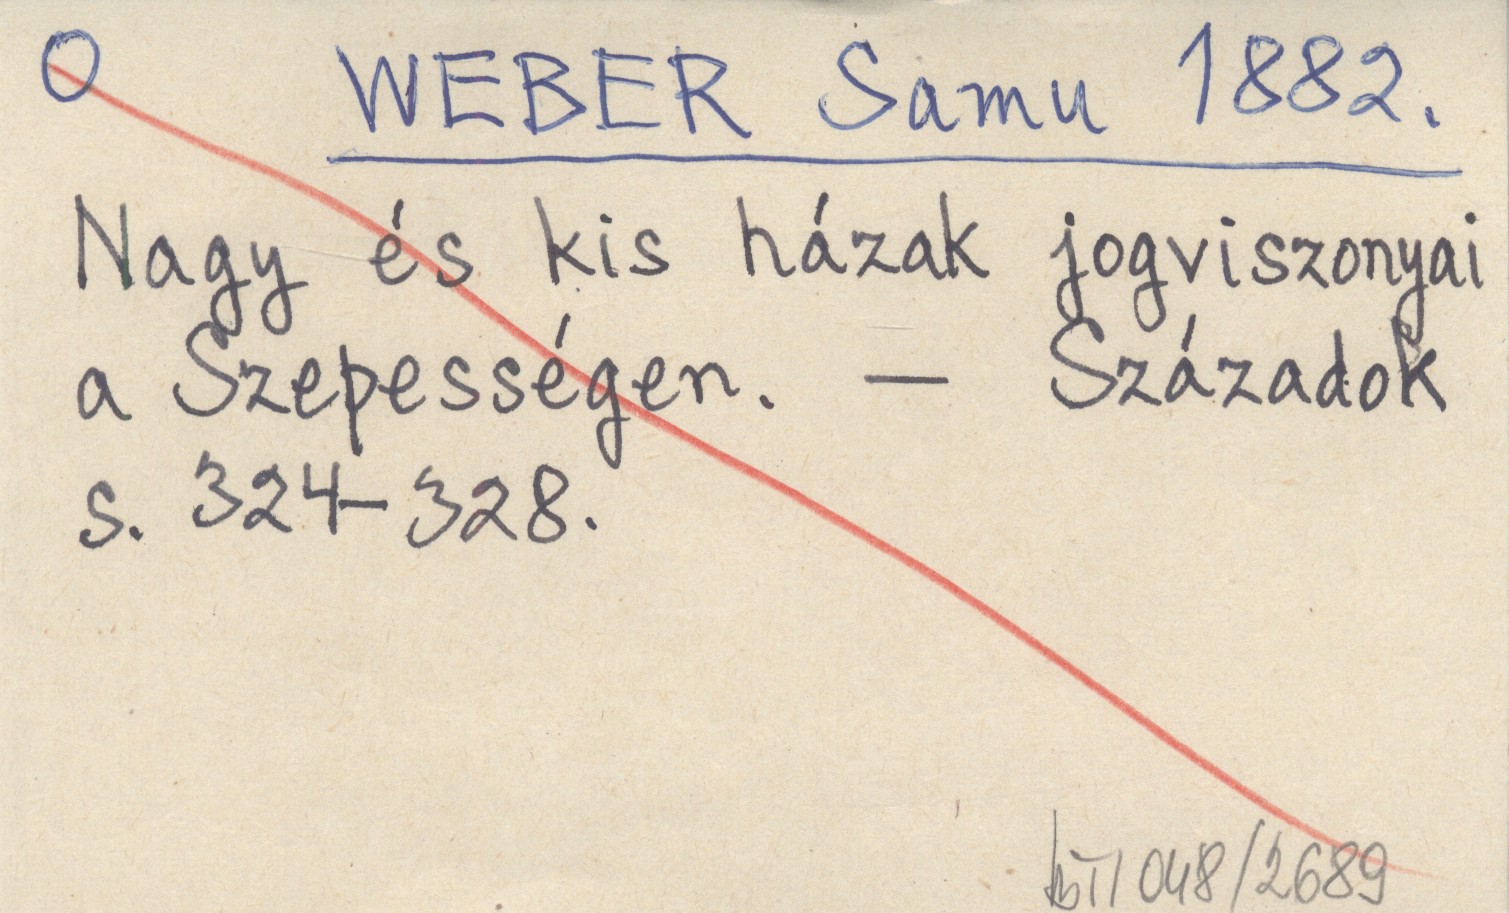 O WEBER Samu 1882.
Nagy és kis házak jogviszonyai
a Szepességen. — Századok
s. 324–328.
048/2689